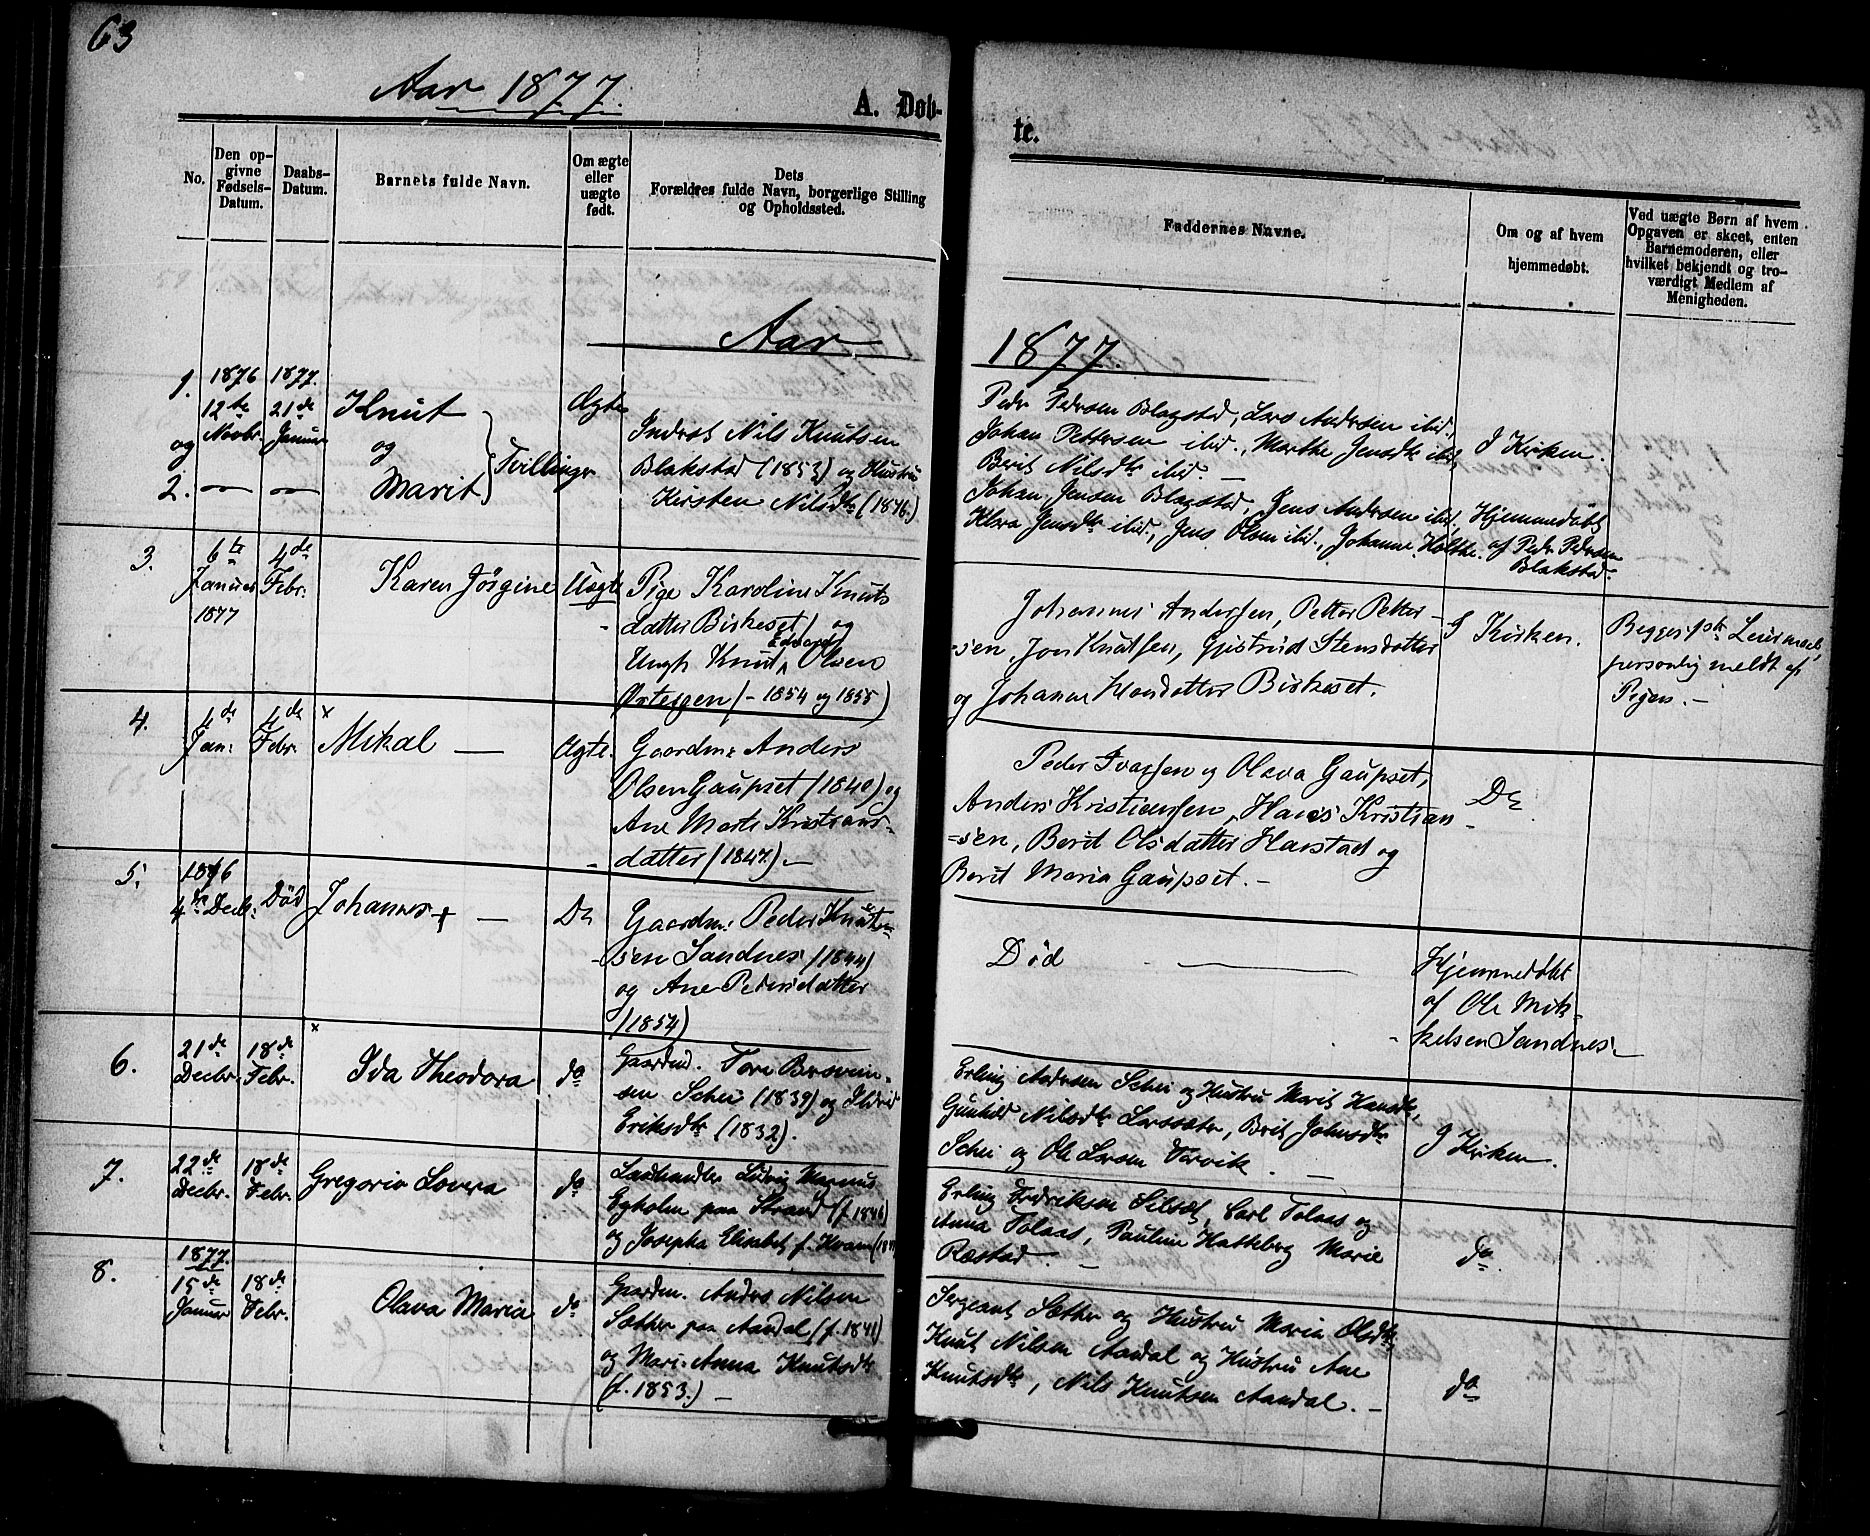 63
Aar 1877.
A. Døb-
te.
No.
Den op-
givne
Fødsels-
Datum.
Daabs-
Datum.
Barnets fulde Navn.
Om ægte
eller
uægte
født.
Dets
Forældres fulde Navn, borgerlige Stilling
og Opholdssted.
Faddernes Navne.
Om og af hvem
hjemmedøbt.
Ved uægte Børn af hvem
Opgaven er skeet, enten
Barnemoderen, eller
hvilket bekjendt og tro-
værdigt Medlem af
Menigheden.
Aar
1877.
1.
og
2.
1876
12te
Novbr.
1877.
21de
Januar
Knut
og
Marit
Tvillinger
Ægte
Inderst Nils Knutsen
Blakstad (1853) og Hustru
Kirsten Nilsdtr (1846.)
Peder Pedersen Blagstad, Lars Andersen ibid.,
Johan Pettersen ibid., Marthe Jensdtr ibid,
Berit Nilsdtr ibid. —
Johan Jensen Blagstad, Jens Andersen ibid.,
Klara Jensdtr ibid., Jens Olsen ibid., Johanne Holthe.
I Kirken.
Hjemmedøbt
af Peder Pedersen
Blakstad.
3.
6te
Januar
1877
4de
Febr.
Karen Jørgine
Uægte
Pige Karoline Knuts
datter Birkeset) og
Ungk Knut Edvard Olsen
(- 1854 og 1855)
Johannes Andersen, Petter Petter-
-sen, Jon Knutsen, Gjertrud Stensdatter
og Johanne Hansdatter Birkeset.
I Kirken.
Begges 1ste Leiermaal,
personlig meldt af
Pigen. -
4.
4de
Jan:
4de
Febr.
x
Mikal —
Ægte.
Gaardm: Anders
Olsen Gaupset (1840) og
Ane Marte Kristians-
datter (1847.) —
Peder Ivarsen og Olava Gaupset,
Anders Kristiansen, Hans Kristian-
-sen, Berit Olsdatter Harstad og
Berit Maria Gaupset. -
Do
5.
1876
4de Decbr:
Død
Johannes + —
Do
Gaardm: Peder Knut-
-sen Sandnes (1844)
og Ane Pedersdatter
(1854)
Død —
Hjemmedøbt
af Ole Mik-
kelsen Sandnes. -
6.
21de
Decbr.
18de
Febr.
x
Ida Theodora
do
Gaardmd. Tore
sen Schei (1839) og Ildrid
Eriksdtr (1832).
Erling Andersen Schei og Hustru Marit Hansdtr,
Gunhild Nilsdtr Larssæter, Brit Johnsdtr
Schei og Ole Larsen Vorvik. —
I Kirken.
7.
22de
Decbr.
18de
Febr.
Gregoria Lovera
do
Landhandler Ludvig Magnus
Egholm paa Strand (f. 1846)
og Josepha Elisabet f. Kvam
Erling Fredriksen Silset, Carl Tolaas og
Anna Tolaas, Pauline Hatteberg Marie
Ræstad. —
do.
8.
1877.
15de
Januar
18de
Febr.
Olava Maria
do
Gaardm. Andrs Nilsen
Sæther paa Aandal (f. 1841)
og Mari-Anna Knutsdtr
(f. 1853.) —
Sergeant Sæther og Hustru Maria Olsdtr,
Knut Nilsen Aandal og Hustru Ane
Knutsdtr, Nils Knutsen Aandal. -
do